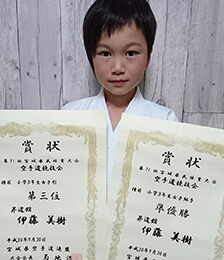 賞状
第71回宮城県民体育大会
空手道競技会
種目 小学3年生女子形
第三位
昇道館
伊藤 美樹
平成30年9月30日
宮城県空手道連盟
大会会長
賞状
第71回宮城県民体育大会
空手道競技会
種目 小学3年生女子組手
準優勝
昇道館
伊藤 美樹
平成30年9月30日